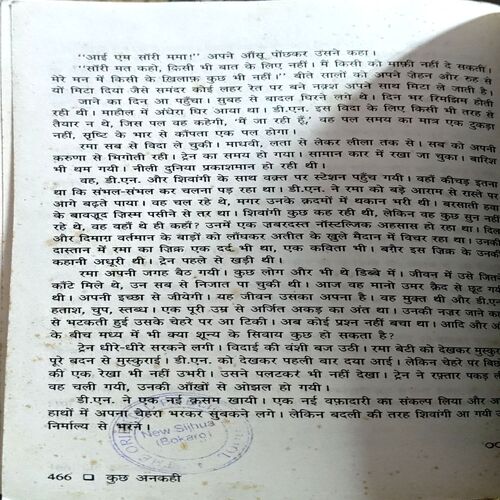 "आई एम सॉरी ममा!" अपने आँसू पोंछकर उसने कहा।
"सॉरी मत कहो, किसी भी बात के लिए नहीं। मैं किसी को माफ़ी नहीं दे सकती।
मेरे मन में किसी के ख़िलाफ़ कुछ भी नहीं।" बीते सालों को अपने ज़ेहन और रुह से
यों मिटा दिया जैसे समंदर कोई लहर रेत पर बने नक़्श अपने साथ मिटा ले जाती है।
जाने का दिन आ पहुँचा। सुबह से बादल घिरने लगे थे। दिन भर रिमझिम होती
रही थी। माहौल में अंधेरा घिर आया था। डी.एन. इस विदा के लिए किसी भी तरह से
तैयार न थे, जिस पल वह कहेगी, 'मैं जा रही हूँ,' वह पल समय का मात्र एक टुकड़ा
नहीं, सृष्टि के भार से काँपता एक पल होगा।
रमा सब से विदा ले चुकी। माधवी, लता से लेकर लीला तक से। सब को अपनी
करुणा से भिगोती रही। ट्रेन का समय हो गया। सामान कार में रखा जा चुका। बारिश
भी थम गयी। नीली दुनिया प्रकाशमान हो रही थी।
वह, डी.एन. और शिवांगी के साथ वक़्त पर स्टेशन पहुँच गयी। वहाँ कीचड़ इतना
था कि संभल-संभल कर चलना पड़ रहा था। डी.एन. ने रमा को बड़े आराम से रास्ते पर
आगे बढ़ते पाया। वह चल रहे थे, मगर उनके क़दमों में थकान भरी थी। बरसाती हवा
के बावजूद ज़िस्म पसीने से तर था। शिवांगी कुछ कह रही थी, लेकिन वह कुछ सुन नहीं
रहे थे, वह वहाँ थे ही कहाँ? उनमें एक ज़बरदस्त नॉस्टल्जिक अहसास हो रहा था। दिल
और दिमाग़ वर्तमान के बाड़ों को लाँघकर अतीत के खुले मैदान में विचर रहा था। उनकी
दास्तान में रमा का ज़िक्र एक दर्द भी था, एक कविता भी। बग़ैर इस ज़िक्र के उनकी
कहानी अधूरी थी। ट्रेन पहले से खड़ी थी।
रमा अपनी जगह बैठ गयी। कुछ लोग और भी थे डिब्बे में। जीवन में उसे जितने
काँटे मिले थे, उन सब से निजात पा चुकी थी। आज वह मानो उमर क़ैद से छूट गयी
थी। अपनी इच्छा से जीयेगी। यह जीवन उसका अपना है। वह मुक्त थी और डी.एन.
हताश, चुप, स्तब्ध। एक पूरी उम्र से अर्जित अकड़ का अंत था। उनकी नज़र जाने कहाँ
से भटकती हुई उसके चेहरे पर आ टिकी। अब कोई प्रश्न नहीं बचा था। आदि और अंत
के बीच मध्य में भी क्या शून्य के सिवाय कुछ हो सकता है?
ट्रेन धीरे-धीरे सरकने लगी। विदाई की वंशी बज उठी। रमा बेटी को देखकर मुस्कुराई
पूरे बदन से मुस्कुराई। डी.एन. को देखकर पहली बार दया आई। लेकिन चेहरे पर बिछोह
की एक रेखा भी नहीं उभरी। उसने पलटकर भी नहीं देखा। ट्रेन ने रफ़्तार पकड़ ली
वह चली गयी, उनकी आँखों से ओझल हो गयी।
डी.एन. ने एक नई क़सम खायी। एक नई वफ़ादारी का संकल्प लिया और अपने
हाथों में अपना चेहरा भरकर सुबकने लगे। लेकिन बदली की तरह शिवांगी आ गयी उनके
निर्माल्य से भरने।
New Sijhua
(Bokaro)
466 ❑ कुछ अनकही